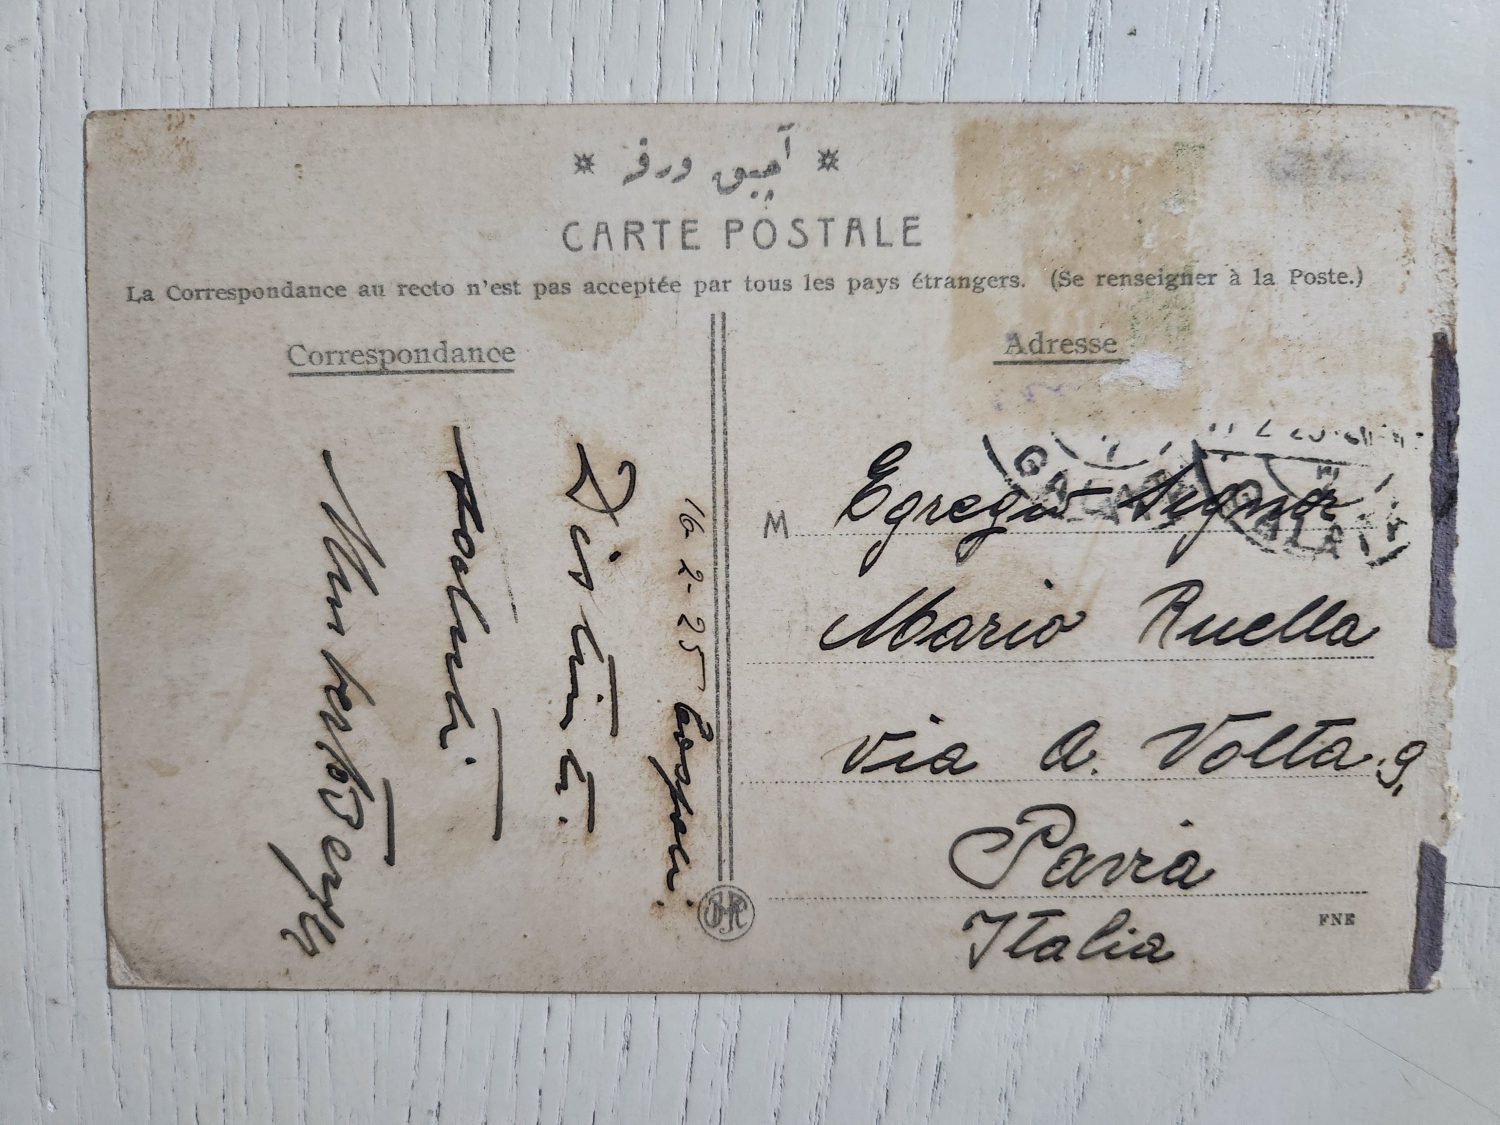 آچیق ورق
CARTE POSTALE
La Correspondance au recto n'est pas acceptée par tous les pays étrangers. (Se renseigner à la Poste.)
Correspondance
Adresse
16-2-25
Distinti
saluti
M
Egregio Signor
Mario Ruella
via A. Volta 9,
Pavia
Italia
FNE
GALATA
GALATA